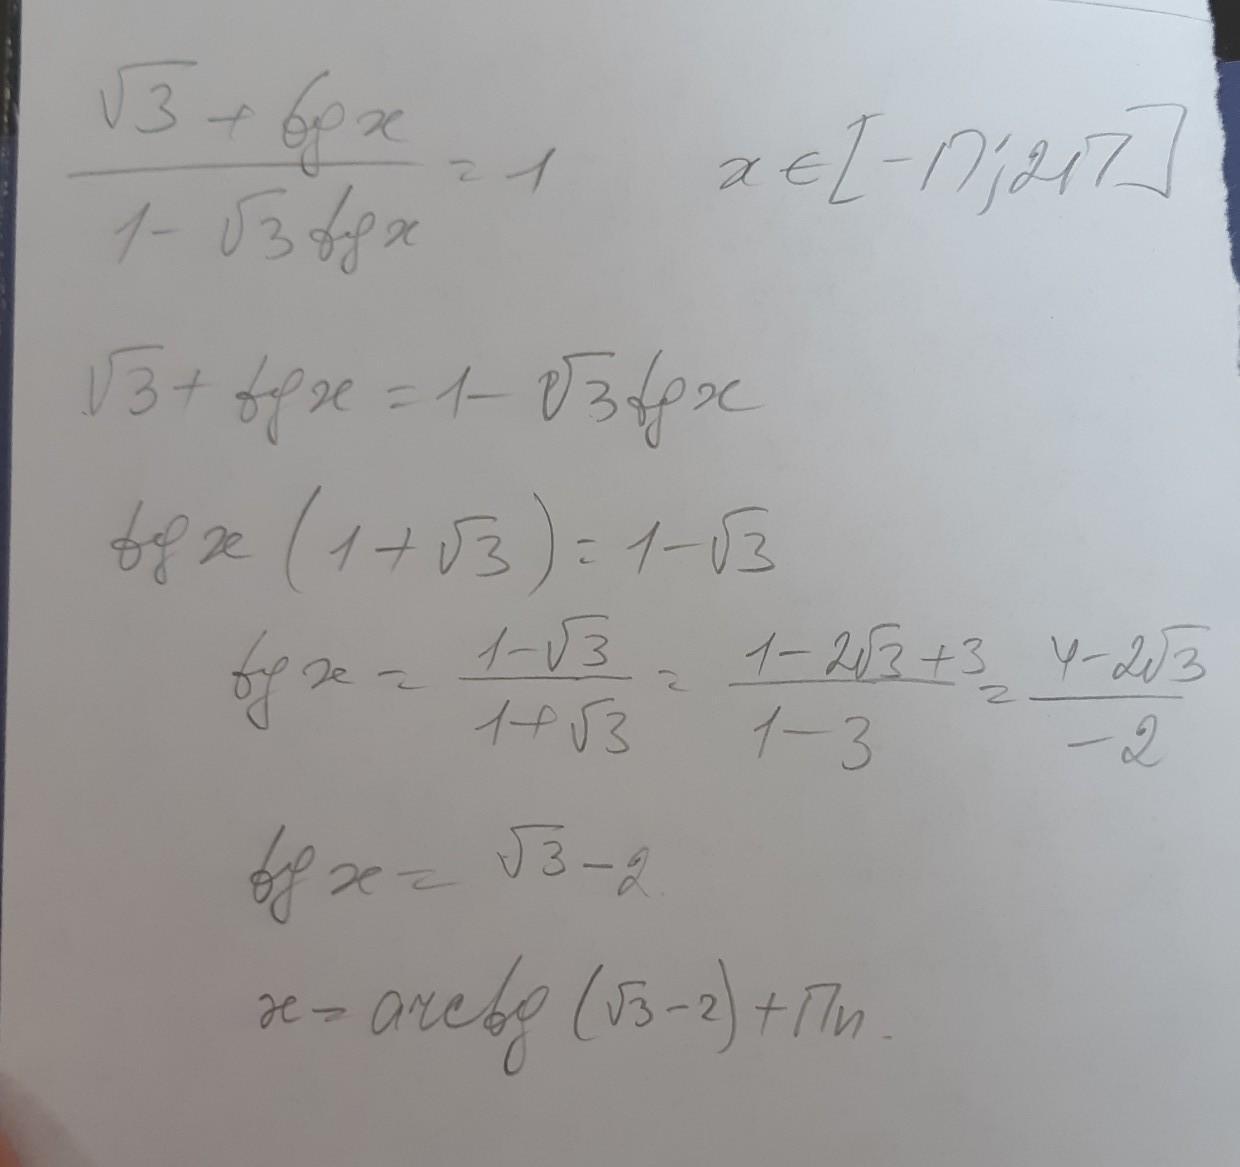 (√3 + tg x)/(1 - √3 tg x) = 1 x ∈ [-π; 2π]
√3 + tg x = 1 - √3 tg x
tg x (1 + √3) = 1 - √3
tg x = (1 - √3)/(1 + √3) = (1 - 2√3 + 3)/(1 - 3) = (4 - 2√3)/(-2)
tg x = √3 - 2
x = arctg (√3 - 2) + πn.